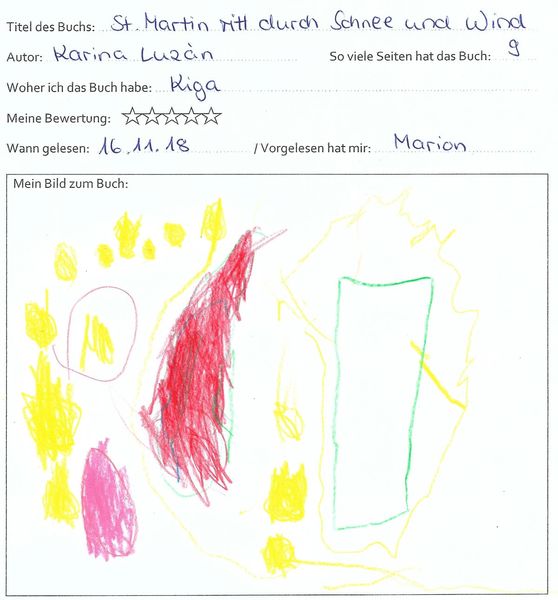 Titel des Buchs: St. Martin ritt durch Schnee und Wind
Autor: Karina Luzàn So viele Seiten hat das Buch: 9
Woher ich das Buch habe: Kiga
Meine Bewertung:
Wann gelesen: 16.11.18 / Vorgelesen hat mir: Marion
Mein Bild zum Buch: